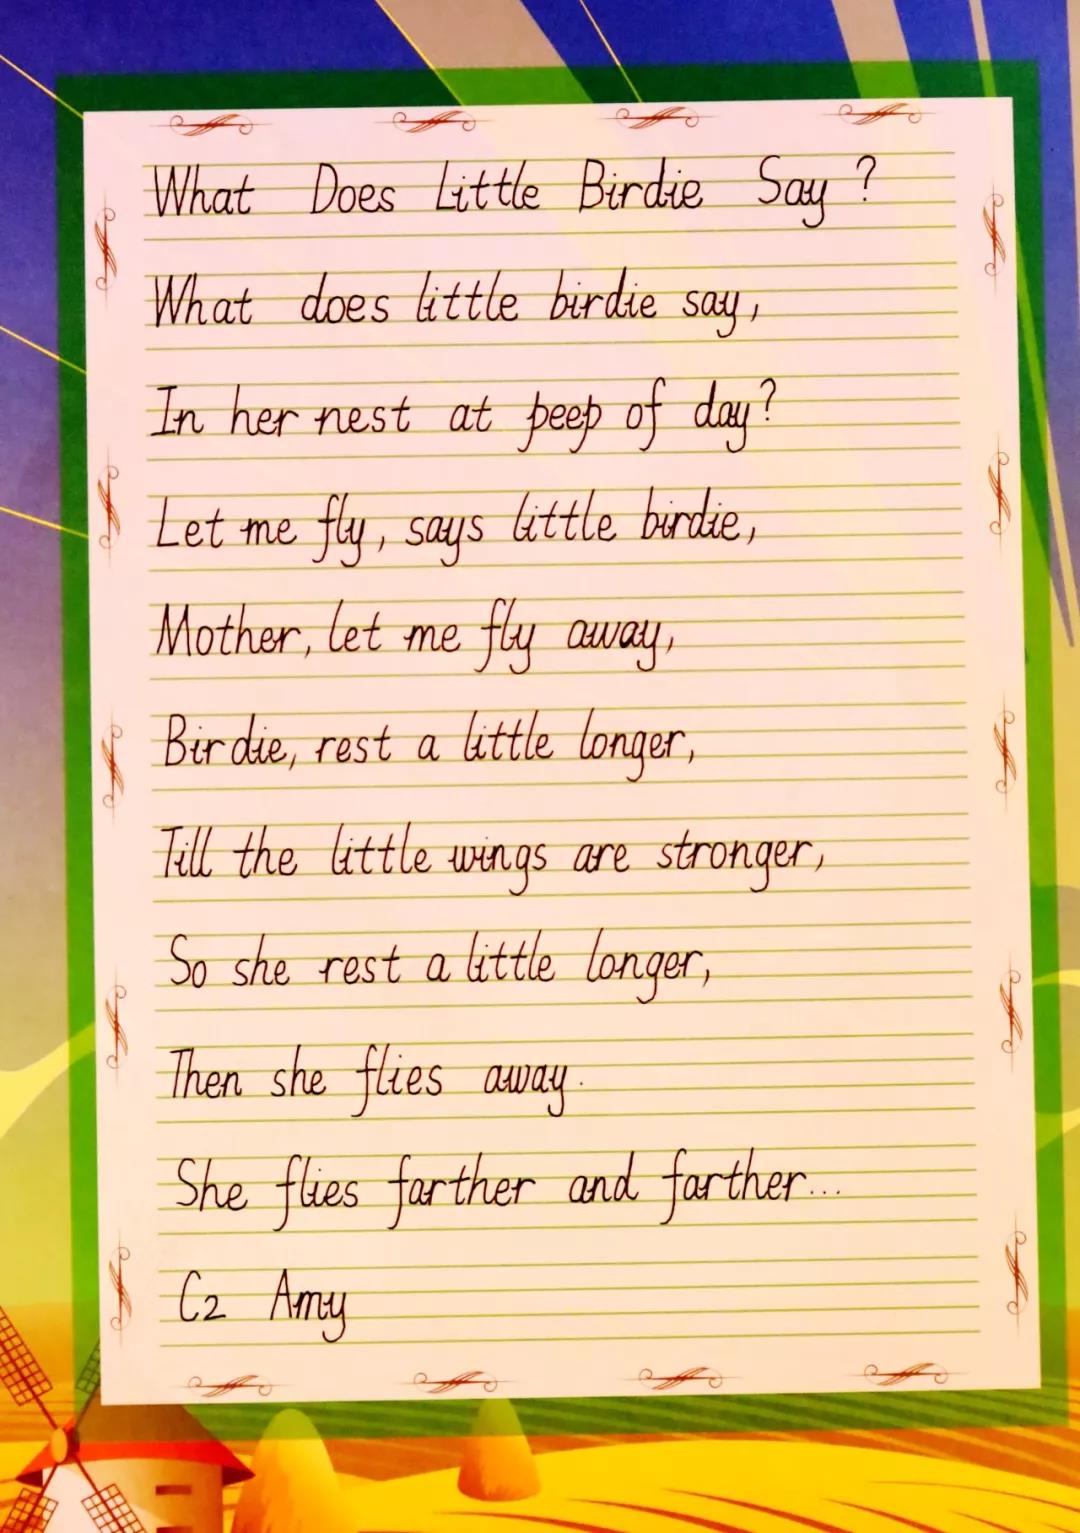 What Does Little Birdie Say?
What does little birdie say,
In her nest at peep of day?
Let me fly, says little birdie,
Mother, let me fly away,
Birdie, rest a little longer,
Till the little wings are stronger,
So she rest a little longer,
Then she flies away.
She flies farther and farther...
C2 Amy